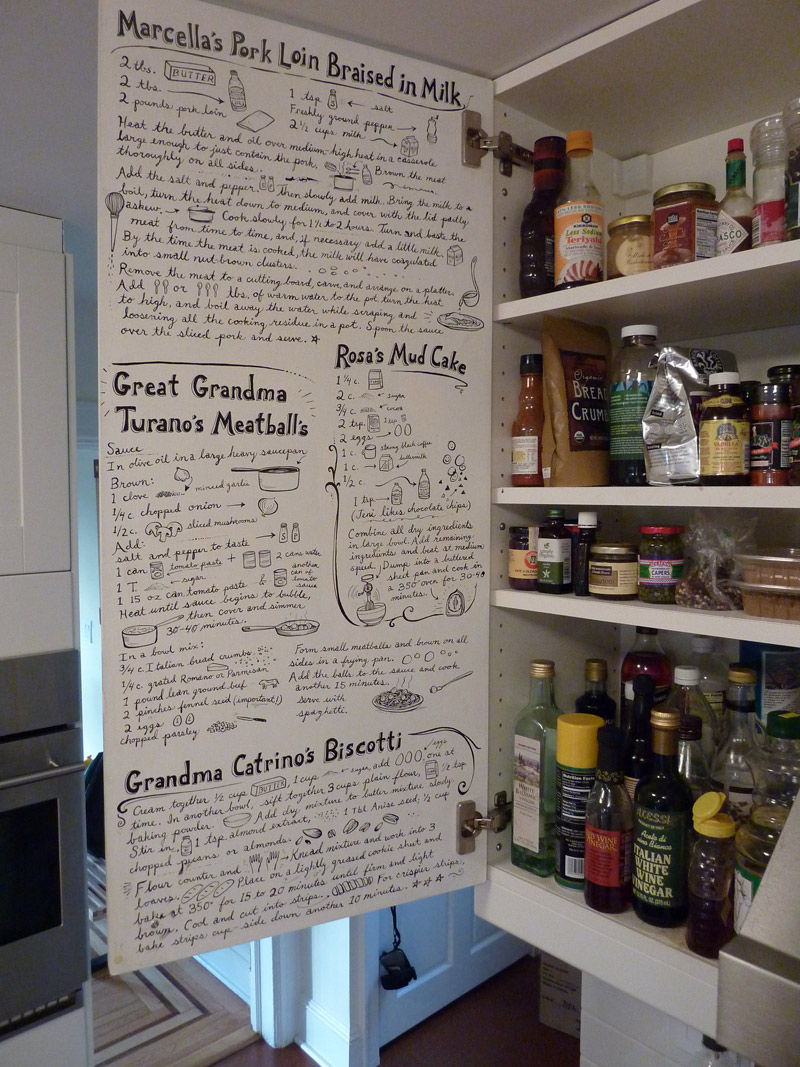 Marcella's Pork Loin Braised in Milk
2 tbs. BUTTER
2 tbs.
2 pounds pork loin
1 tsp salt
Freshly ground pepper
2 1/2 cups milk
Heat the butter and oil over medium-high heat in a casserole
large enough to just contain the pork. Brown the meat
thoroughly on all sides.
Add the salt and pepper. Then slowly add milk. Bring the milk to a
boil, turn the heat down to medium, and cover with the lid partly
askew. Cook slowly for 1 1/2 to 2 hours. Turn and baste the
meat from time to time, and, if necessary add a little milk.
By the time the meat is cooked, the milk will have coagulated
into small nut-brown clusters.
Remove the meat to a cutting board, carve and arrange on a platter.
Add or tbs. of warm water to the pot, turn the heat
to high, and boil away the water while scraping and
loosening all the cooking residue in a pot. Spoon the sauce
over the sliced pork and serve.
Great Grandma
Turano's Meatball's
Sauce
In olive oil in a large heavy saucepan
Brown:
1 clove minced garlic
1/4 c. chopped onion
1/2 c. sliced mushrooms
Add:
salt and pepper to taste S P
1 can tomato paste + 2 cans water
1 T. sugar
1 15 oz can tomato paste & another can of tomato sauce
Heat until sauce begins to bubble,
then cover and simmer
30-40 minutes.
In a bowl mix:
3/4 c. Italian bread crumbs
1/4 c. grated Romano or Parmesan
1 pound lean ground beef
2 pinches fennel seed (important!)
2 eggs
chopped parsley
Form small meatballs and brown on all
sides in a frying pan.
Add the balls to the sauce and cook
another 15 minutes.
serve with
spaghetti.
Rosa's Mud Cake
1 3/4 c.
2 c. sugar
3/4 c. cocoa
2 tsp.
2 eggs
1 c. strong black coffee
1 c. buttermilk
1/2 c.
1 tsp
(Jeni likes chocolate chips)
Combine all dry ingredients
in large bowl. Add remaining
ingredients and beat at medium
speed. Dump into a buttered
sheet pan and cook in
a 350° oven for 30-40
minutes.
Grandma Catrino's Biscotti
Cream together 1/2 cup BUTTER, 1 cup sugar, add eggs one at
time. In another bowl, sift together 3 cups plain flour, 1/2 tsp
baking powder. Add dry mixture to butter mixture slowly.
Stir in 1 tsp almond extract, 1 Tbl. Anise seed, 1/2 cup
chopped pecans or almonds.
Flour counter and Knead mixture and work into 3
loaves. Place on a lightly greased cookie sheet and
bake at 350° for 15 to 20 minutes until firm and light
brown. Cool and cut into strips. For crispier strips,
bake strips cup-side down another 10 minutes.
KIKKOMAN
Less Sodium
Teriyaki
TABASCO
Organic
BREAD
CRUMBS
VANILLA
CAPERS
WHITE
BALSAMIC
Nutrition Facts
RED WINE
VINEGAR
ALESSI
Aceto di
Vino Bianco
ITALIAN
WHITE
WINE
VINEGAR